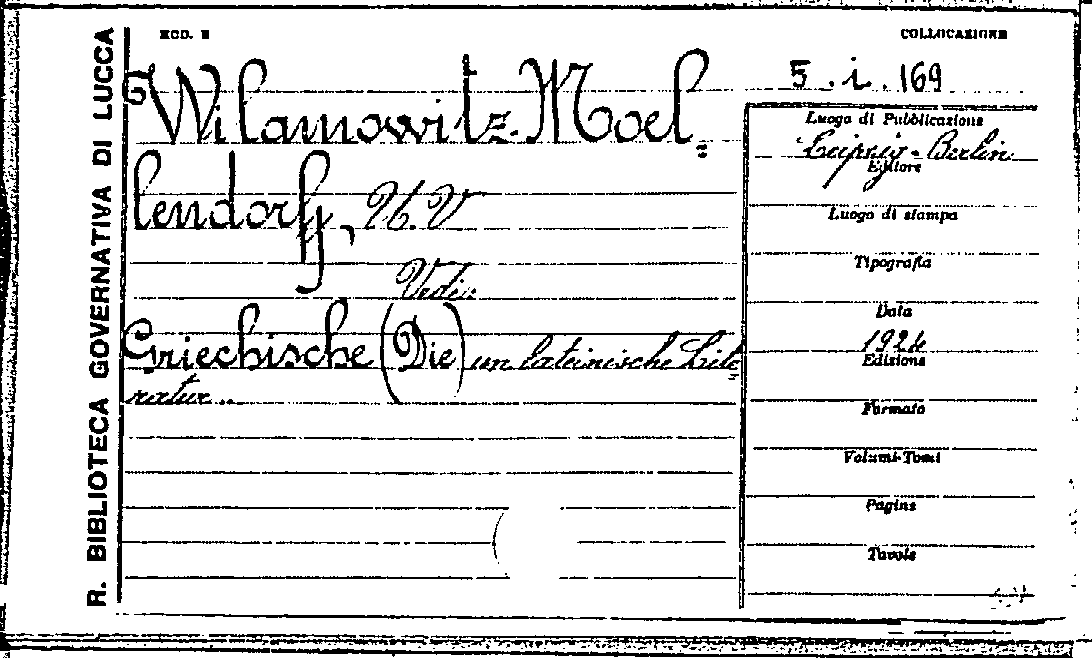 R. BIBLIOTECA GOVERNATIVA DI LUCCA
MOD. E
COLLOCAZIONE
5. i. 169
Wilamowitz-Moel=
lendorff, U. V
Vedi:
Griechische (Die) un lateinische Lite=
ratur..
Luogo di Pubblicazione
Leipzig-Berlin
Editore
Luogo di stampa
Tipografia
Data
1924
Edizione
Formato
Volumi-Tomi
Pagine
Tavole